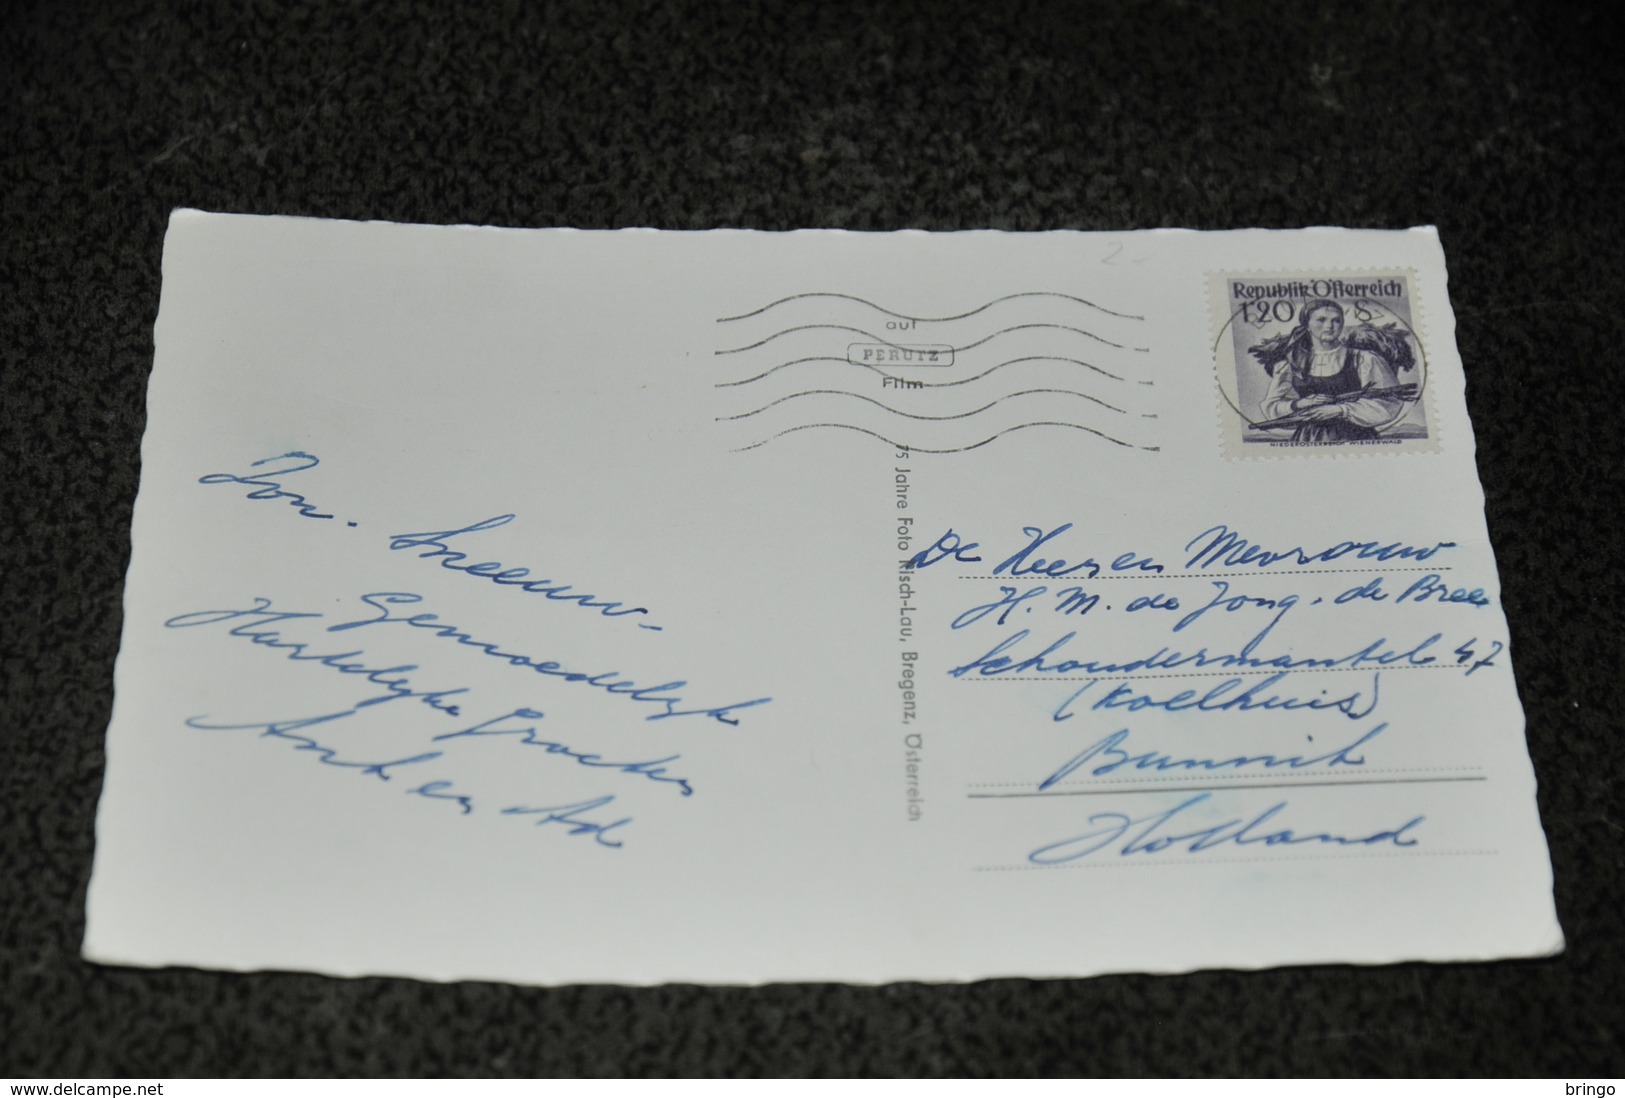 Zon. Sneeuw.
Gemoedelijk
Hartelijke Groeten
Ank en Ad
auf
PERUTZ
Film
75 Jahre Foto Risch-Lau, Bregenz, Österreich
Republik Österreich
1'20 S
NIEDERÖSTERREICH WIENERWALD
De Heer en Mevrouw
H. M. de Jong. de Bree
Schoudermantel 47
(Koelhuis)
Bunnik
Holland
www.delcampe.net
bringo